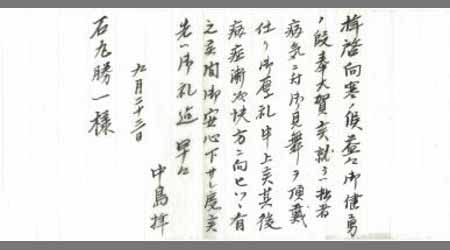 拝啓向寒ノ候益々御健勇
ノ段奉大賀候就テハ拙者
病気ニ対御見舞ヲ頂戴
仕リ御厚礼申上候其後
病症漸次快方ニ向ヒツヽ有
之候間御安心下サレ度候
先ハ御礼迄早々
九月二十三日
中島拝
石九勝一様